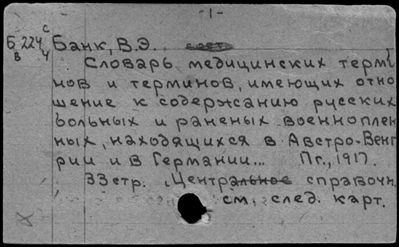 -1-
С
Б 224 Банк, В.Э. сост.
В Ч
Словарь медицинских терми
нов и терминов, имеющих отно
шение к содержанию русских
больных и раненых военноплен
ных, находящихся в Австро-Венг
рии и в Германии... Пг., 1917.
33 стр. /Центральное справочн.
см. след. карт.